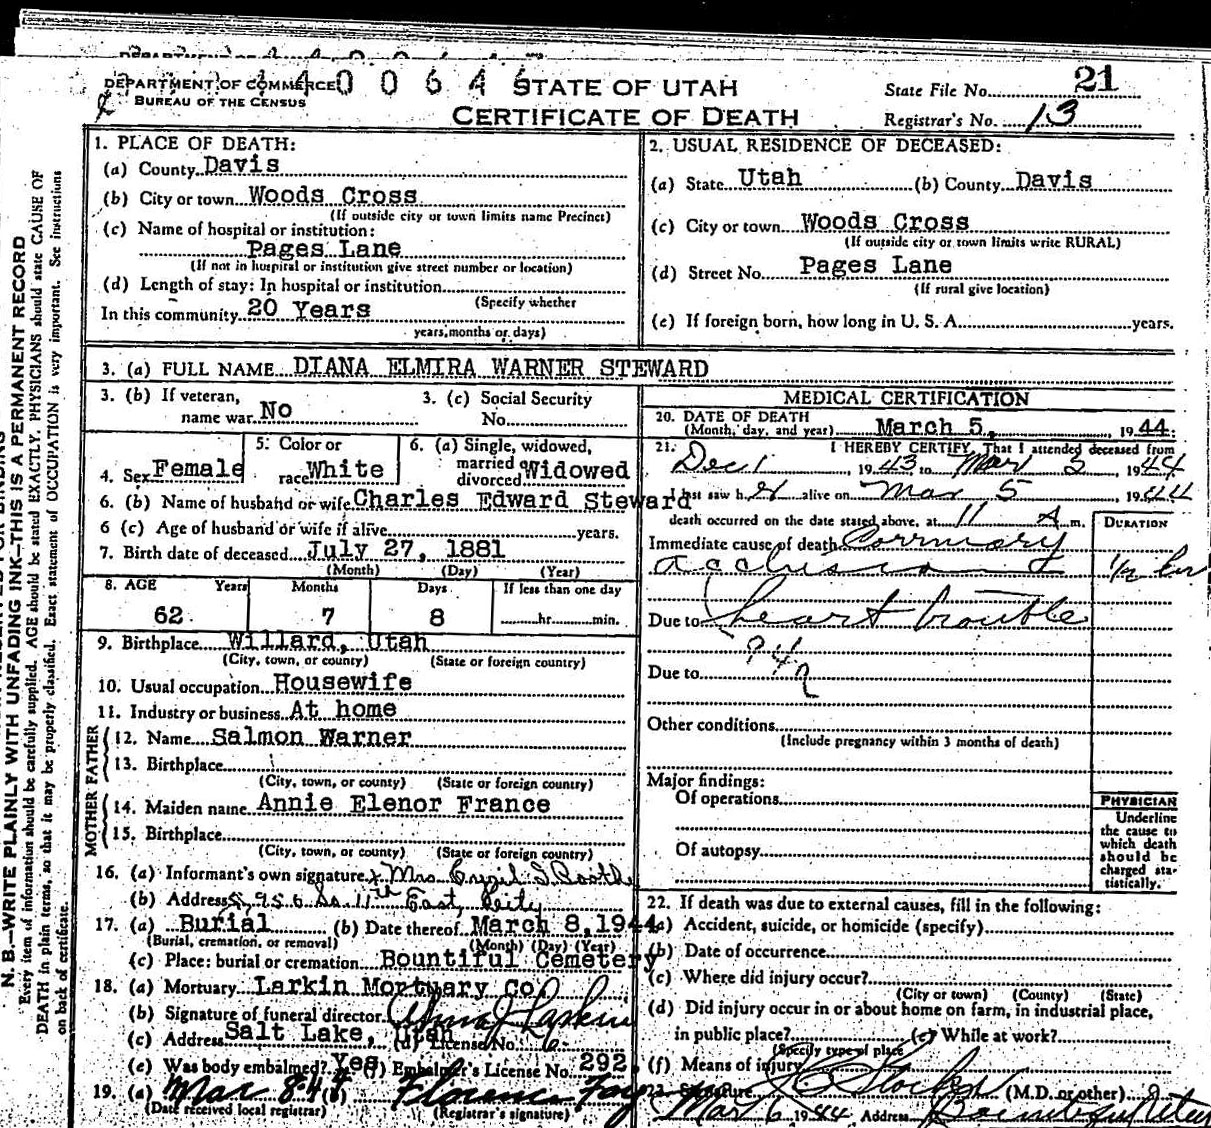 DEPARTMENT OF COMMERCE
BUREAU OF THE CENSUS
400646
STATE OF UTAH
CERTIFICATE OF DEATH
State File No. 21
Registrar's No. 13
N. B.—WRITE PLAINLY WITH UNFADING INK—THIS IS A PERMANENT RECORD
Every item of information should be carefully supplied. AGE should be stated EXACTLY. PHYSICIANS should state CAUSE OF
DEATH in plain terms, so that it may be properly classified. Exact statement of OCCUPATION is very important. See instructions
on back of certificate.
1. PLACE OF DEATH:
(a) County Davis
(b) City or town Woods Cross
(If outside city or town limits name Precinct)
(c) Name of hospital or institution:
Pages Lane
(If not in hospital or institution give street number or location)
(d) Length of stay: In hospital or institution
(Specify whether
In this community 20 Years
years, months or days)
2. USUAL RESIDENCE OF DECEASED:
(a) State Utah (b) County Davis
(c) City or town Woods Cross
(If outside city or town limits write RURAL)
(d) Street No. Pages Lane
(If rural give location)
(e) If foreign born, how long in U. S. A. years.
3. (a) FULL NAME DIANA ELMIRA WARNER STEWARD
3. (b) If veteran,
name war No
3. (c) Social Security
No.
4. Sex Female
5. Color or
race White
6. (a) Single, widowed,
married or
divorced Widowed
6. (b) Name of husband or wife Charles Edward Steward
6 (c) Age of husband or wife if alive years.
7. Birth date of deceased July 27, 1881
(Month) (Day) (Year)
8. AGE Years Months Days If less than one day
62 7 8 hr. min.
9. Birthplace Willard, Utah
(City, town, or county) (State or foreign country)
10. Usual occupation Housewife
11. Industry or business At home
FATHER
12. Name Salmon Warner
13. Birthplace
(City, town, or county) (State or foreign country)
MOTHER
14. Maiden name Annie Elenor France
15. Birthplace
(City, town, or county) (State or foreign country)
16. (a) Informant's own signature Mrs
(b) Address So. 11th East, City
17. (a) Burial (b) Date thereof March 8, 1944
(Burial, cremation, or removal) (Month) (Day) (Year)
(c) Place: burial or cremation Bountiful Cemetery
18. (a) Mortuary Larkin Mortuary Co
(b) Signature of funeral director Larkin
(c) Address Salt Lake, Utah (d) License No.
(e) Was body embalmed? Yes (f) Embalmer's License No. 292
19. (a) Mar 8-44 (b) Florence
(Date received local registrar) (Registrar's signature)
MEDICAL CERTIFICATION
20. DATE OF DEATH
(Month, day, and year) March 5, 1944
21. I HEREBY CERTIFY, That I attended deceased from
Dec 1, 1943 to Mar 5, 1944
I last saw her alive on Mar 5, 1944
death occurred on the date stated above, at 11 A m.
DURATION
Immediate cause of death Corrnary
acclusion 1/2 hr
Due to heart trouble
94a
Due to
Other conditions
(Include pregnancy within 3 months of death)
Major findings:
Of operations
Of autopsy
PHYSICIAN
Underline
the cause to
which death
should be
charged sta-
tistically.
22. If death was due to external causes, fill in the following:
(a) Accident, suicide, or homicide (specify)
(b) Date of occurrence
(c) Where did injury occur?
(City or town) (County) (State)
(d) Did injury occur in or about home on farm, in industrial place,
in public place? (e) While at work?
(Specify type of place)
(f) Means of injury
23. Signature (M.D. or other)
Mar 6 1944 Address